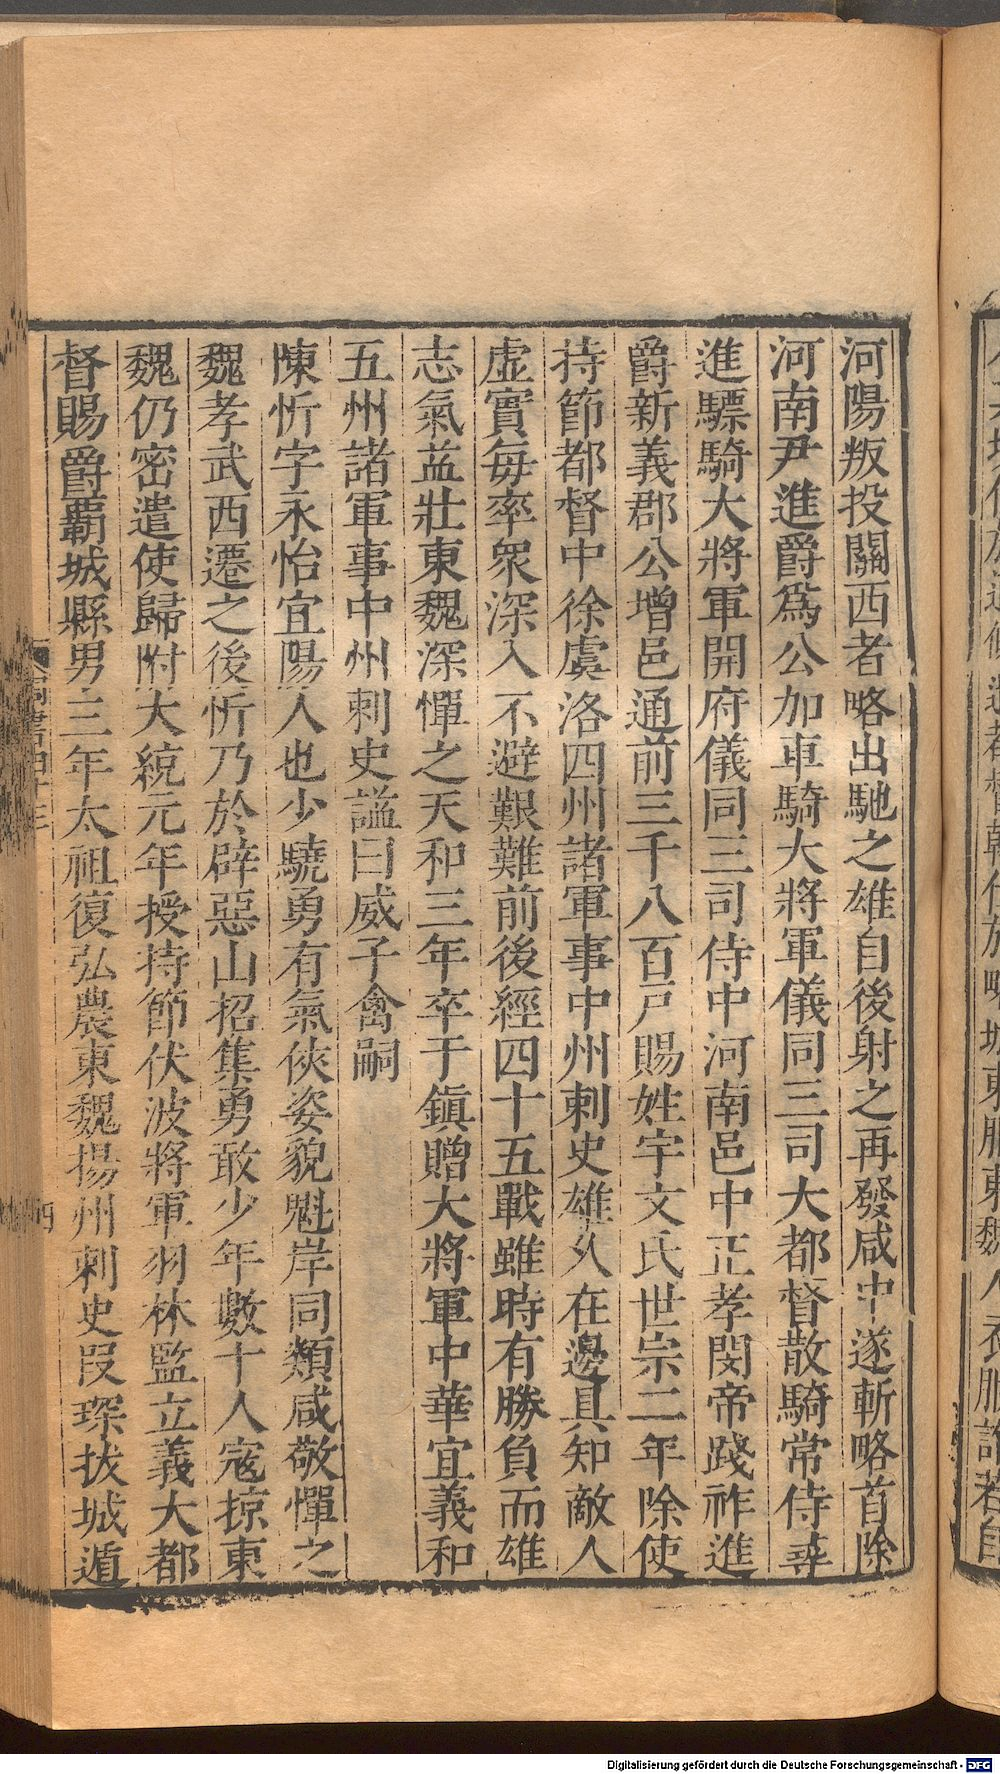 河陽叛投關西者略出馳之雄自後射之再發咸中遂斬略首除
河南尹進爵爲公加車騎大將軍儀同三司大都督散騎常侍尋
進驃騎大將軍開府儀同三司侍中河南邑中正孝閔帝踐祚進
爵新義郡公增邑通前三千八百戶賜姓宇文氏世宗二年除使
持節都督中徐虞洛四州諸軍事中州刺史雄久在邊具知敵人
虛實每率衆深入不避艱難前後經四十五戰雖時有勝負而雄
志氣益壯東魏深憚之天和三年卒于鎮贈大將軍中華宜義和
五州諸軍事中州刺史謚曰威子禽嗣
陳忻字永怡宜陽人也少驍勇有氣俠姿貌魁岸同類咸敬憚之
魏孝武西遷之後忻乃於辟惡山招集勇敢少年數十人寇掠東
魏仍密遣使歸附大統元年授持節伏波將軍羽林監立義大都
督賜爵覇城縣男三年太祖復弘農東魏揚州刺史叚琛拔城遁
Digitalisierung gefördert durch die Deutsche Forschungsgemeinschaft - DFG